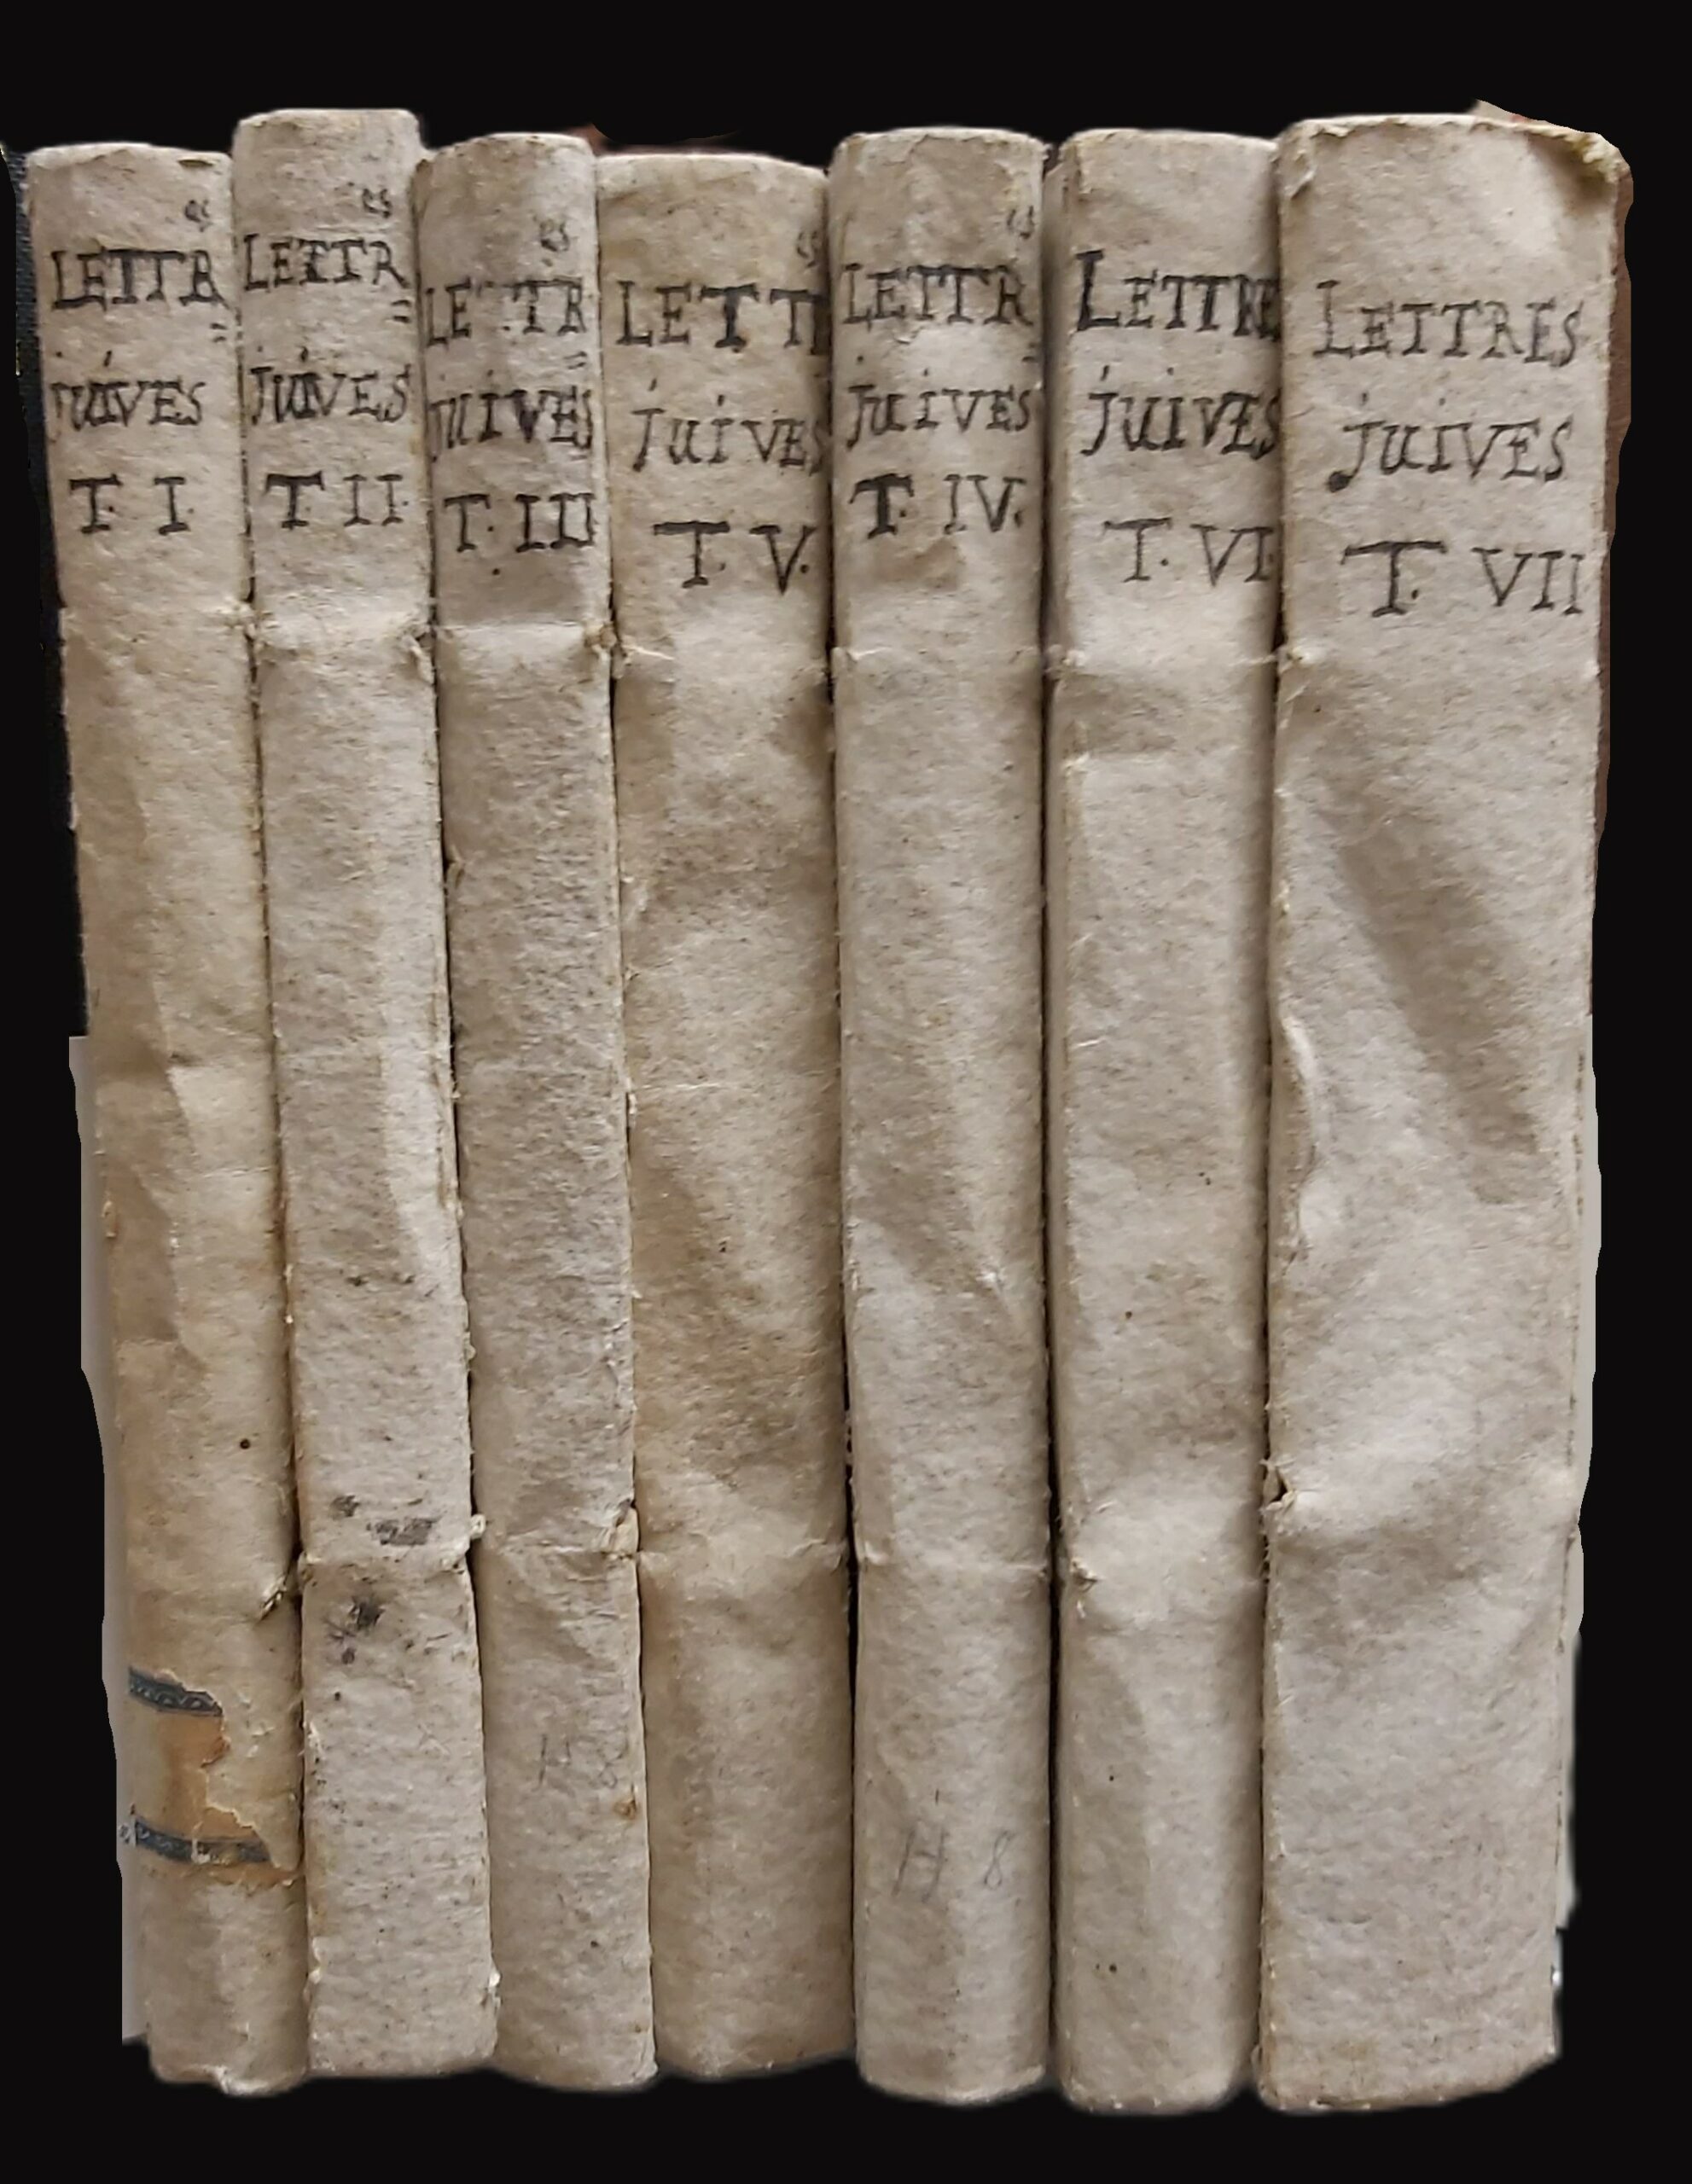 LETTR es
JUIVES
T. I.
LETTR es
JUIVES
T. II.
LETTR es
JUIVES
T. III
LETT es
JUIVES
T. V.
LETTR es
JUIVES
T. IV.
LETTRE
JUIVES
T. VI
LETTRES
JUIVES
T. VII
H 8
H 8